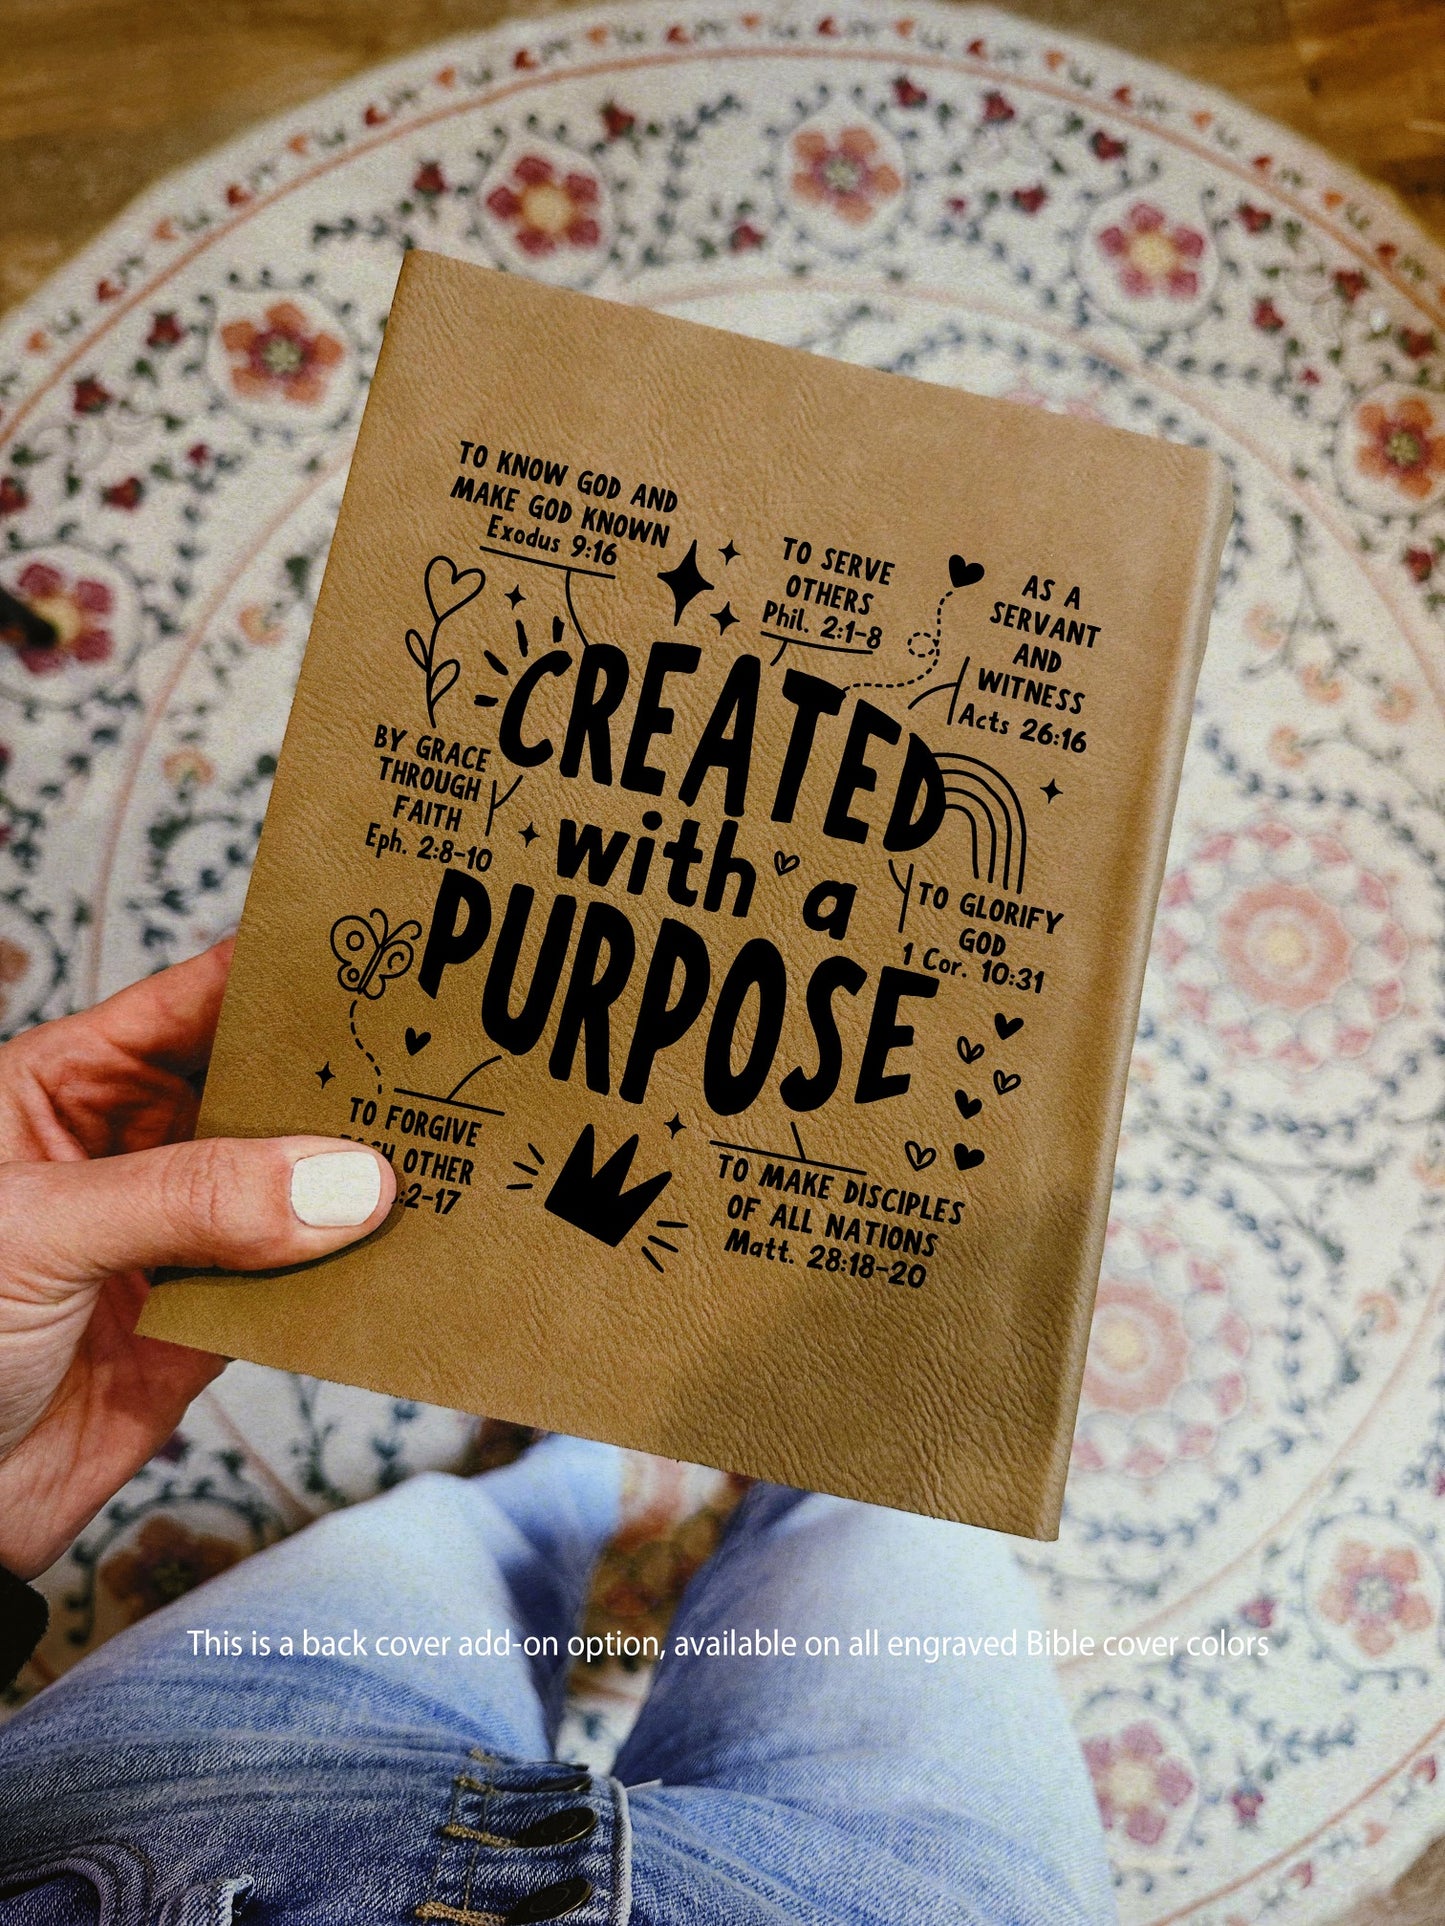 TO KNOW GOD AND
MAKE GOD KNOWN
Exodus 9:16
TO SERVE
OTHERS
Phil. 2:1-8
AS A
SERVANT
AND
WITNESS
Acts 26:16
CREATED
BY GRACE
THROUGH
FAITH
Eph. 2:8-10
with a
TO GLORIFY
GOD
1 Cor. 10:31
PURPOSE
TO FORGIVE
OTHER
:2-17
TO MAKE DISCIPLES
OF ALL NATIONS
Matt. 28:18-20
This is a back cover add-on option, available on all engraved Bible cover colors